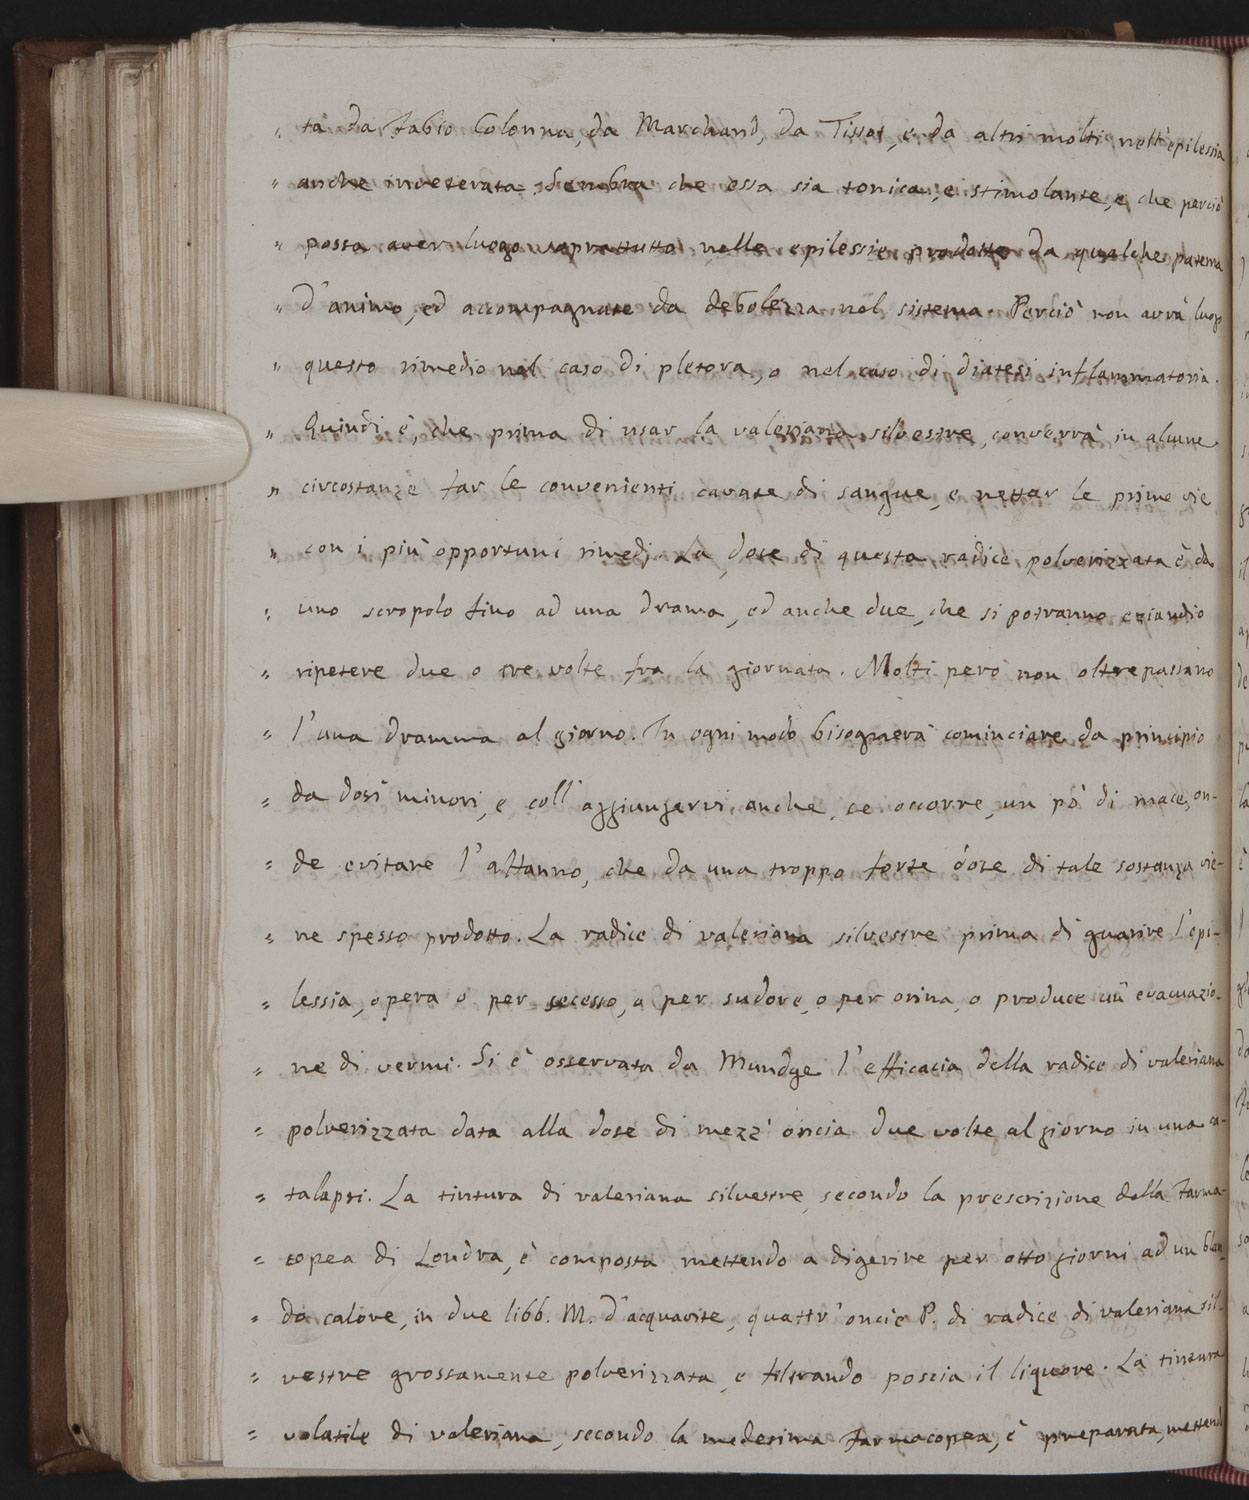 " ta da Fabio Colonna, da Marchand, da Tissot, e da altri molti nell'epilessia
" anche inveterata. Sembra che essa sia tonica, e stimolante, e che perciò
" possa aver luogo soprattutto nelle epilessie prodotte da qualche patema
" d'animo, ed accompagnate da debolezza nel sistema. Perciò non avrà luogo
" questo rimedio nel caso di pletora, o nel caso di diatesi inflammatoria.
" Quindi è, che prima di usar la valeriana silvestre, converrà in alcune
" circostanze far le convenienti cavate di sangue, e nettar le prime vie
" con i più opportuni rimedj. La dose di questa radice polverizzata è da
" uno scropolo fino ad una drama, ed anche due, che si potranno eziandio
" ripetere due o tre volte fra la giornata. Molti però non oltrepassano
" l'una dramma al giorno. In ogni modo bisognerà cominciare da principio
" da dosi minori, e coll'aggiungervi anche, se occorre, un pò di mace, on-
" de evitare l'affanno, che da una troppo forte dose di tale sostanza vie-
" ne spesso prodotto. La radice di valeriana silvestre prima di guarire l'epi-
" lessia, opera o per secesso, o per sudore, o per orina, o produce un evacuazio-
" ne di vermi. Si è osservata da Mundge l'efficacia della radice di valeriana
" polverizzata data alla dose di mezz'oncia due volte al giorno in una ca-
" talapsi. La tintura di valeriana silvestre, secondo la prescrizione della Farma-
" copea di Londra, è composta mettendo a digerire per otto giorni ad un blan-
" do calore, in due libb. M. d'acquavite, quattr'oncie P. di radice di valeriana sil-
" vestre grossamente polverizzata, e filtrando poscia il liquore. La tintura
" volatile di valeriana, secondo la medesima farmacopea, è preparata, mettendo